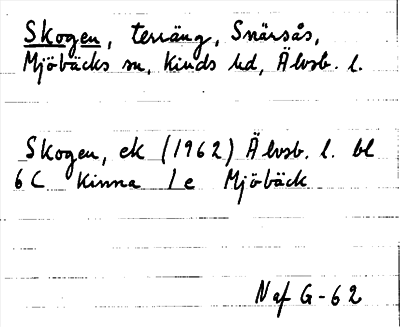 Skogen, terräng, Snärsås,
Mjöbäcks sn, Kinds hd, Älvsb. l.
Skogen, ek (1962) Älvsb. l. bl
6 C Kinna 1 e Mjöbäck
Naf G-62